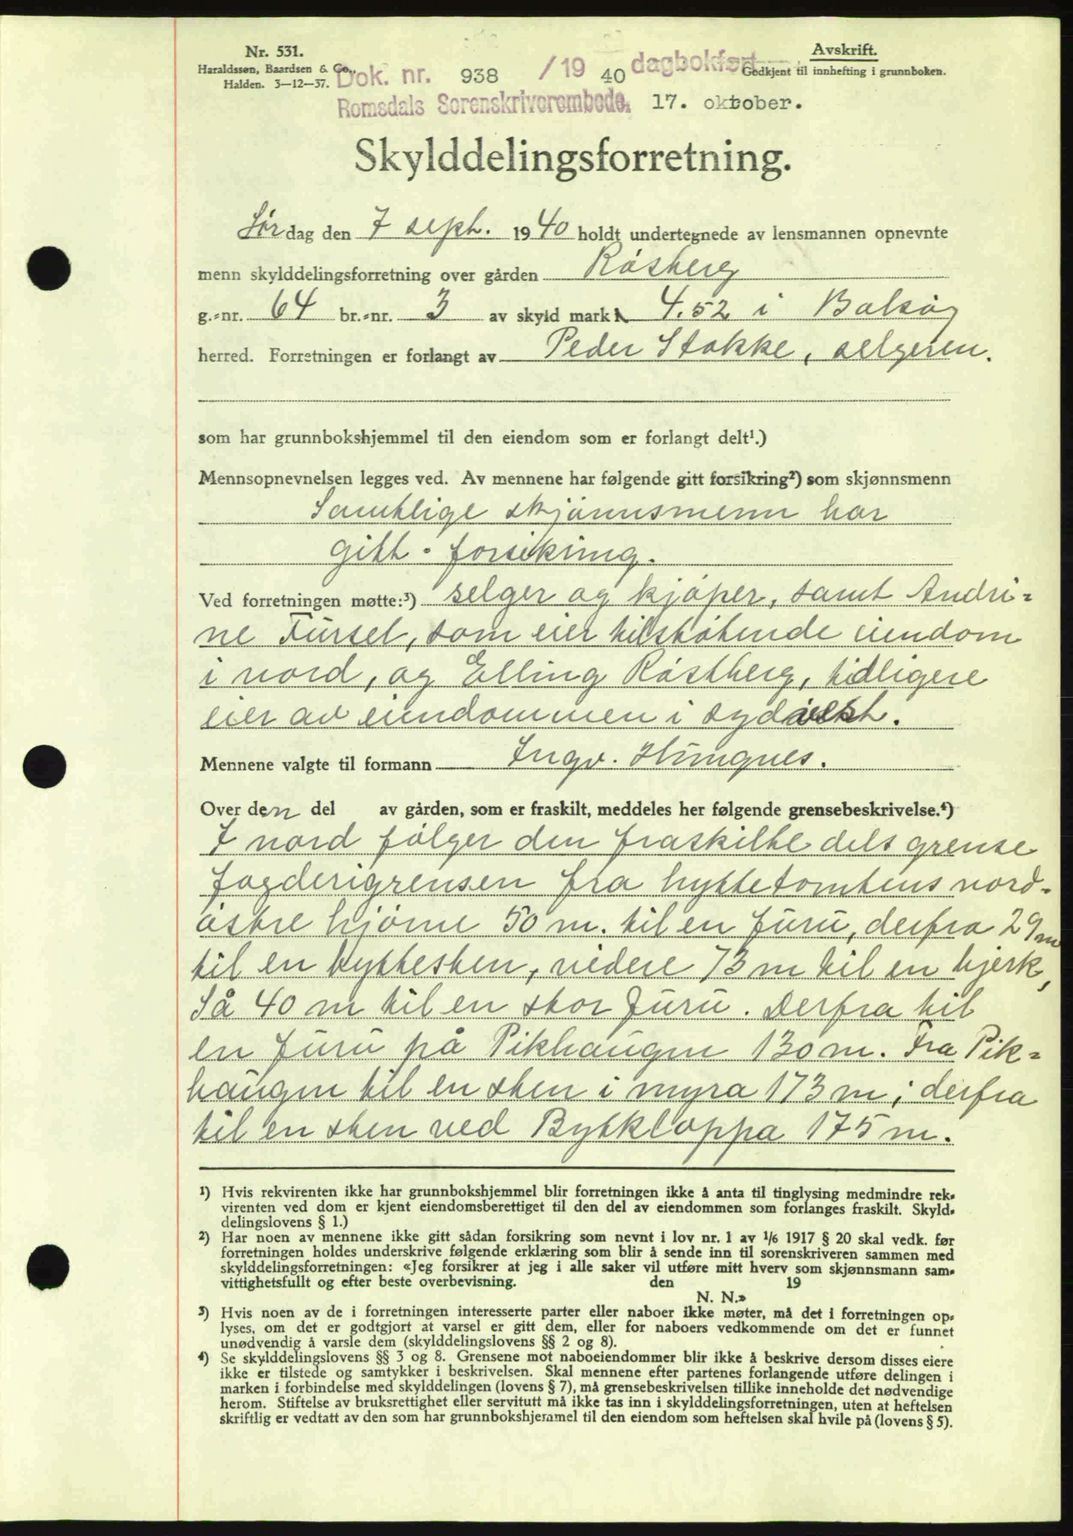 Nr. 531.
Haraldssøn, Baardsen & Co.,
Halden. 3—12—37.
Avskrift.
Godkjent til innhefting i grunnboken.
Dok. nr. 938 /19 40 dagbokført
Romsdals Sorenskriverembede, 17. oktober.
Skylddelingsforretning.
Lørdag den 7 sept. 1940 holdt undertegnede av lensmannen opnevnte
menn skylddelingsforretning over gården Røsberg
g.-nr. 64 br.-nr. 3 av skyld mark 4.52 i Bolsøy
herred. Forretningen er forlangt av Peder Stokke, selgeren.
som har grunnbokshjemmel til den eiendom som er forlangt delt¹.)
Mennsopnevnelsen legges ved. Av mennene har følgende gitt forsikring²) som skjønnsmenn
Samtlige skjønnsmenn har
gitt forsikring.
Ved forretningen møtte:³) selger og kjøper, samt Andri-
ne Furset, som eier tilstøtende eiendom
i nord, og Elling Røstberg, tidligere
eier av eiendommen i sydvest.
Mennene valgte til formann Ingv. Hungnes.
Over den del av gården, som er fraskilt, meddeles her følgende grensebeskrivelse.⁴)
I nord følger den fraskilte dels grense
fogderigrensen fra hyttetomtens nord-
østre hjørne 50 m. til en furu, derfra 29 m
til en byttesten, videre 73 m til en bjerk,
så 40 m til en stor furu. Derfra til
en furu på Pikhaugen 130 m. Fra Pik-
haugen til en sten i myra 173 m; derfra
til en sten ved Byttkloppa 175 m.
¹) Hvis rekvirenten ikke har grunnbokshjemmel blir forretningen ikke å anta til tinglysing medmindre rek-
virenten ved dom er kjent eiendomsberettiget til den del av eiendommen som forlanges fraskilt. Skyld-
delingslovens § 1.)
²) Har noen av mennene ikke gitt sådan forsikring som nevnt i lov nr. 1 av 1/6 1917 § 20 skal vedk. før
forretningen holdes underskrive følgende erklæring som blir å sende inn til sorenskriveren sammen med
skylddelingsforretningen: «Jeg forsikrer at jeg i alle saker vil utføre mitt hverv som skjønnsmann sam-
vittighetsfullt og efter beste overbevisning. den 19
N. N.»
³) Hvis noen av de i forretningen interesserte parter eller naboer ikke møter, må det i forretningen op-
lyses, om det er godtgjort at varsel er gitt dem, eller for naboers vedkommende om det er funnet
unødvendig å varsle dem (skylddelingslovens §§ 2 og 8).
⁴) Se skylddelingslovens §§ 3 og 8. Grensene mot naboeiendommer blir ikke å beskrive dersom disses eiere
ikke er tilstede og samtykker i beskrivelsen. Skal mennene efter partenes forlangende utføre delingen i
marken i forbindelse med skylddelingen (lovens § 7), må grensebeskrivelsen tillike inneholde det nødvendige
herom. Stiftelse av bruksrettighet eller servitutt må ikke tas inn i skylddelingsforretningen, uten at heftelsen
skriftlig er vedtatt av den som har grunnbokshjemmel til den eiendom som heftelsen skal hvile på (lovens § 5).